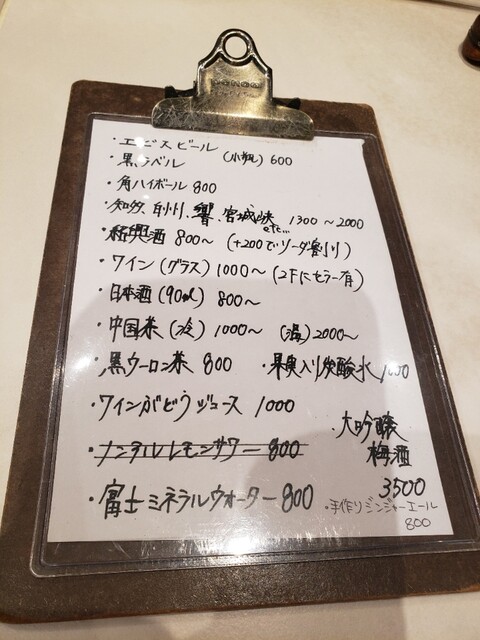 ・エビスビール
・黒ラベル (小瓶) 600
・角ハイボール 800
・知多、白州、響、宮城峡 etc... 1300～2000
・紹興酒 800～ (+200でソーダ割り)
・ワイン (グラス) 1000～ (2Fにセラー有)
・日本酒 (90ml) 800～
・中国茶 (冷) 1000～ (温) 2000～
・黒ウーロン茶 800 ・果実入り炭酸水 1000
・ワインぶどうジュース 1000
・ノンアルレモンサワー 800
・大吟醸
梅酒
3500
・富士ミネラルウォーター 800
・手作りジンジャーエール
800